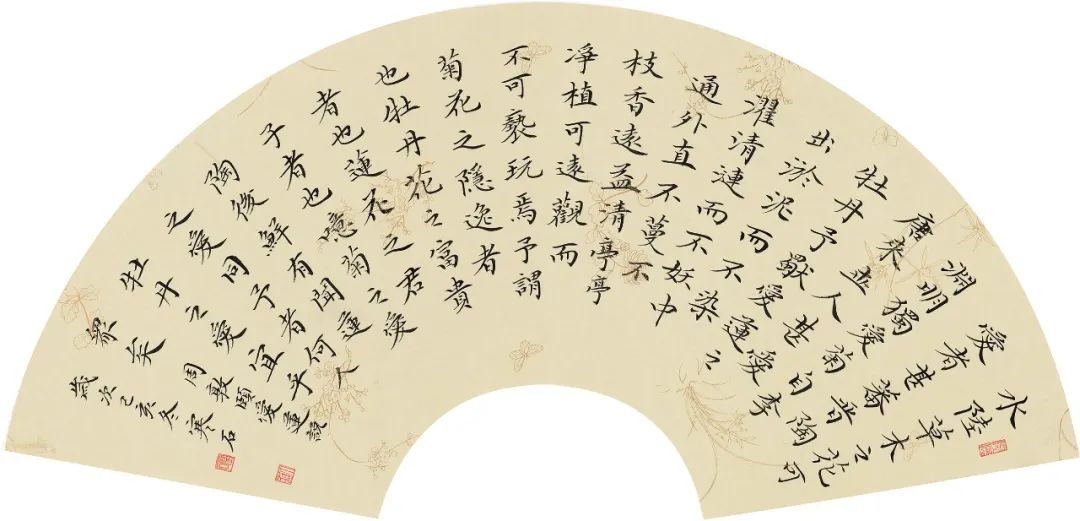 水陸草木之花可
愛者甚蕃晉陶
淵明獨愛菊自李
唐來世人甚愛
牡丹予獨愛蓮之
出淤泥而不染
濯清漣而不妖中
通外直不蔓不
枝香遠益清亭亭
淨植可遠觀而
不可褻玩焉予謂
菊花之隱逸者
也牡丹花之富貴
者也蓮花之君
子者也噫菊之愛
陶後鮮有聞蓮
之愛同予者何人
牡丹之愛宜乎
眾矣 周敦頤愛蓮說
歲次己亥冬寒石